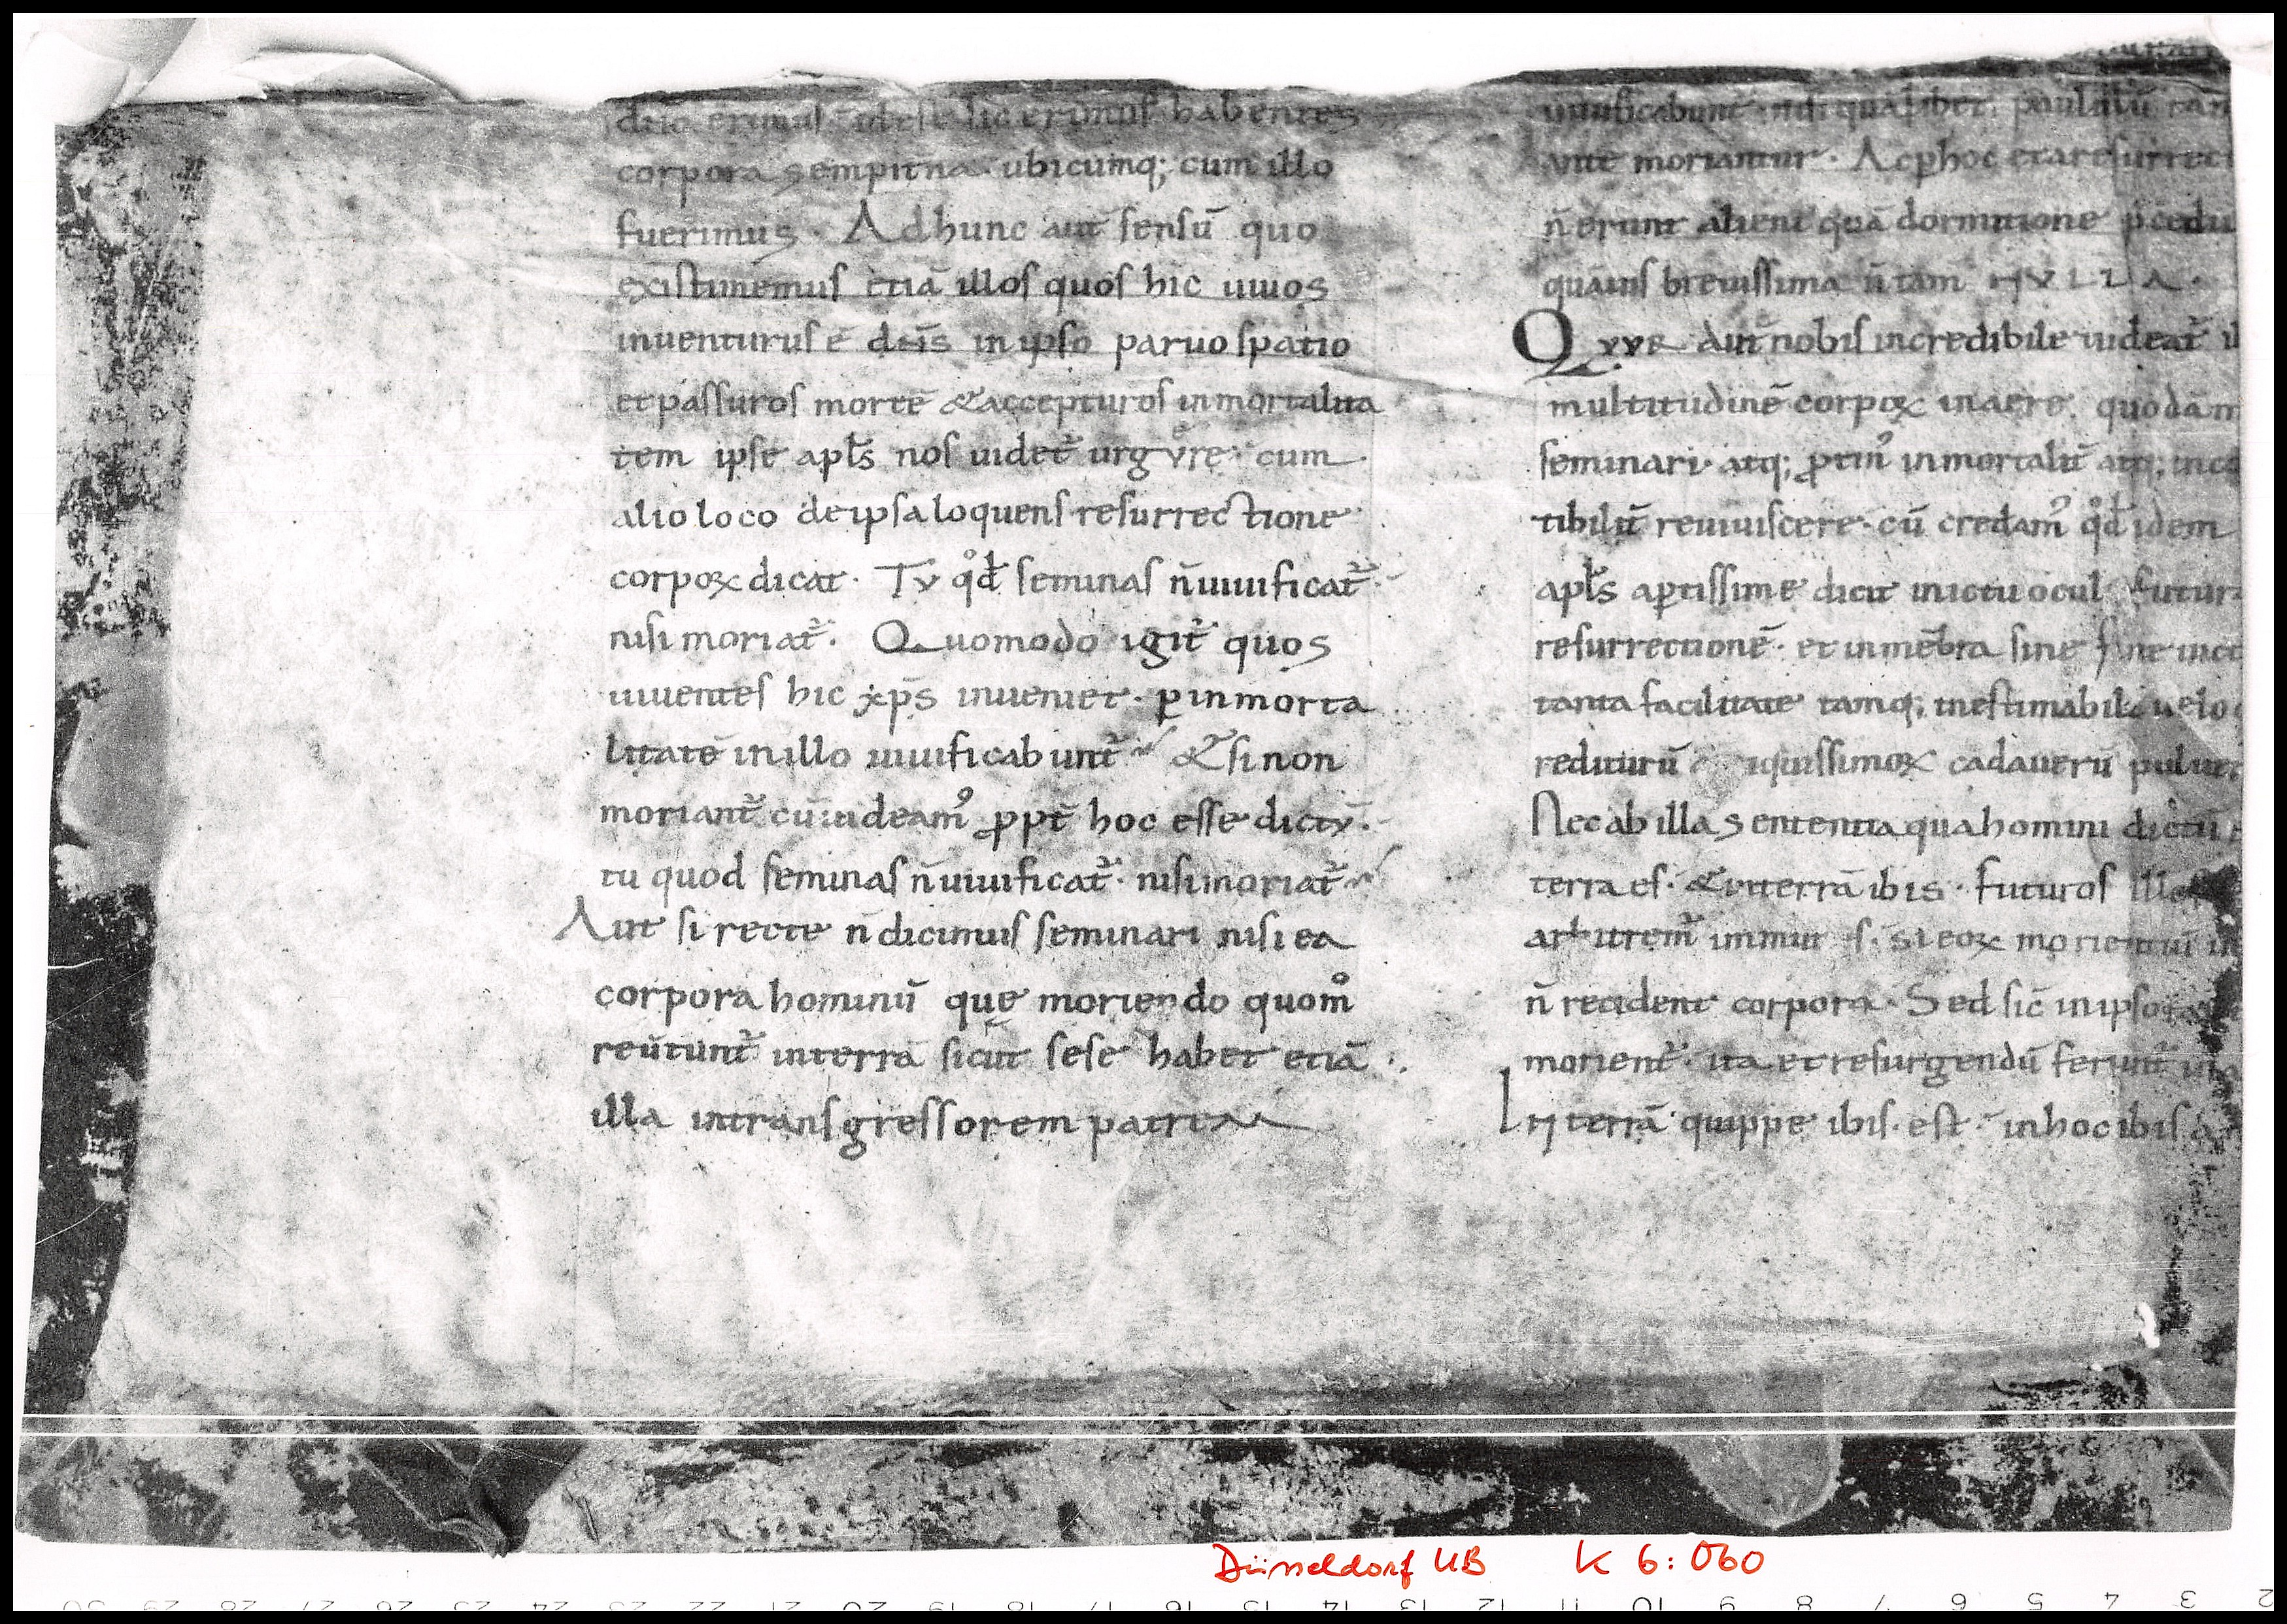 dńo erimus id est sic erimus habentes
corpora sempitna· ubicumq; cum illo
fuerimus· Ad hunc aut̄ sensū quo
existimemus etiā illos quos hic uiuos
inuenturus ē dn̄s in ipso paruo spatio
et passuros mortē & accepturos inmortalita
tem ipse apl̄s nos uidet̄ urgvere· cum
alio loco de ipsa loquens resurrectione
corpoꝝ dicat· Tv qd̄ seminas n̄ uiuificat̄
nisi moriat̄. Quomodo igit̄ quos
uiuentes hic xp̄s inueniet· ꝑ inmorta
litatē in illo uiuificabunt̄ &si non
moriant̄ cū uideam᾿ ꝓpt̄ hoc esse dictv̄·
tu quod seminas n̄ uiuificat̄· nisi moriat̄
Aut si recte n̄ dicimus seminari nisi ea
corpora hominū quę moriendo quom̊
reūtunt̄ in terrā sicut sese habet etiā
illa in transgressorem patrem
uiuificabunt· nisi quālibet paululū tam
ante moriantur· Ac ꝑ hoc et a resurrect
n̄ erunt alieni quā dormitione p̄cedu
quāuis breuissima n̄ tam NVLLA·
Qvvr aut̄ nobis incredibile uideat̄ il
multitudinē corpoꝝ in aere quodā m
seminari· atq; ꝓtin᾿ inmortalit̄ atq; inco
tibilit̄ reuiuiscere· cū credam᾿ qd̄ idem
apl̄s aꝑtissime dicit in ictu ocul futur
resurrectionē· et in mēbra sine fine uict
tanta facilitate tamq; inestimabili uelo
rediturū iquissimoꝝ cadauerū puluer
Nec ab illa sententia qua homini dictū
terra es· & in terrā ibis· futuros illos
arbitrem᾿ immun s· si eoꝝ morientiū in
n̄ recident corpora· Sed sic̄ in ipso
morient̄· ita et resurgendū ferunt̄
In terrā quippe ibis· est· in hoc ibis a
Düsseldorf UB K 6:060
30 29 28 27 26 25 24 23 22 21 20 19 18 17 16 15 14 13 12 11 10 9 8 7 6 5 4 3 2